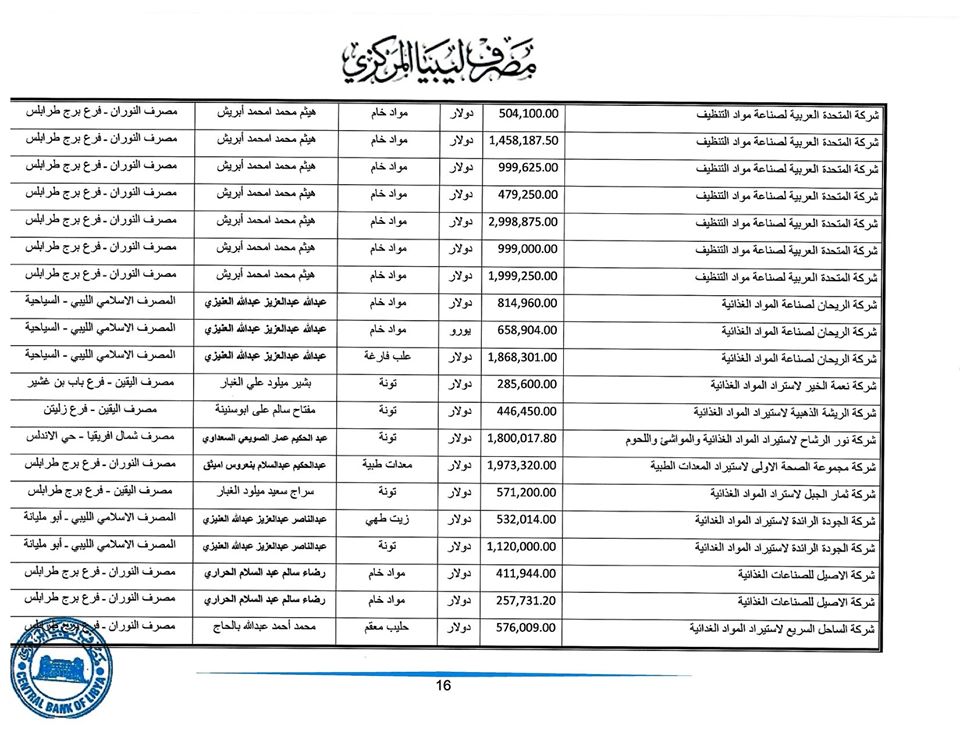 مصرف ليبيا المركزي
شركة المتحدة العربية لصناعة مواد التنظيف 504,100.00 دولار مواد خام هيثم محمد امحمد أبريش مصرف النوران - فرع برج طرابلس
شركة المتحدة العربية لصناعة مواد التنظيف 1,458,187.50 دولار مواد خام هيثم محمد امحمد أبريش مصرف النوران - فرع برج طرابلس
شركة المتحدة العربية لصناعة مواد التنظيف 999,625.00 دولار مواد خام هيثم محمد امحمد أبريش مصرف النوران - فرع برج طرابلس
شركة المتحدة العربية لصناعة مواد التنظيف 479,250.00 دولار مواد خام هيثم محمد امحمد أبريش مصرف النوران - فرع برج طرابلس
شركة المتحدة العربية لصناعة مواد التنظيف 2,998,875.00 دولار مواد خام هيثم محمد امحمد أبريش مصرف النوران - فرع برج طرابلس
شركة المتحدة العربية لصناعة مواد التنظيف 999,000.00 دولار مواد خام هيثم محمد امحمد أبريش مصرف النوران - فرع برج طرابلس
شركة المتحدة العربية لصناعة مواد التنظيف 1,999,250.00 دولار مواد خام هيثم محمد امحمد أبريش مصرف النوران - فرع برج طرابلس
شركة الريحان لصناعة المواد الغذائية 814,960.00 دولار مواد خام عبدالله عبدالعزيز عبدالله العنيزي المصرف الاسلامي الليبي - السياحية
شركة الريحان لصناعة المواد الغذائية 658,904.00 يورو مواد خام عبدالله عبدالعزيز عبدالله العنيزي المصرف الاسلامي الليبي - السياحية
شركة الريحان لصناعة المواد الغذائية 1,868,301.00 دولار علب فارغة عبدالله عبدالعزيز عبدالله العنيزي المصرف الاسلامي الليبي - السياحية
شركة نعمة الخير لاستراد المواد الغذائية 285,600.00 دولار تونة بشير ميلود علي الغبار مصرف اليقين - فرع باب بن غشير
شركة الريشة الذهبية لاستيراد المواد الغذائية 446,450.00 دولار تونة مفتاح سالم على ابوسنينة مصرف اليقين - فرع زليتن
شركة نور الرشاح لاستيراد المواد الغذائية والمواشئ واللحوم 1,800,017.80 دولار تونة عبد الحكيم عمار الصويعي السعداوي مصرف شمال افريقيا - حي الاندلس
شركة مجموعة الصحة الاولى لاستيراد المعدات الطبية 1,973,320.00 دولار معدات طبية عبدالحكيم عبدالسلام بنعروس امبثق مصرف النوران - فرع برج طرابلس
شركة ثمار الجبل لاستراد المواد الغذائية 571,200.00 دولار تونة سراج سعيد ميلود الغبار مصرف اليقين - فرع برج طرابلس
شركة الجودة الرائدة لاستيراد المواد الغذائية 532,014.00 دولار زيت طهي عبدالناصر عبدالعزيز عبدالله العنيزي المصرف الاسلامي الليبي - أبو مليانة
شركة الجودة الرائدة لاستيراد المواد الغدائية 1,120,000.00 دولار تونة عبدالناصر عبدالعزيز عبدالله العنيزي المصرف الاسلامي الليبي - أبو مليانة
شركة الاصيل للصناعات الغذائية 411,944.00 دولار مواد خام رضاء سالم عبد السلام الحراري مصرف النوران - فرع برج طرابلس
شركة الاصيل للصناعات الغذائية 257,731.20 دولار مواد خام رضاء سالم عبد السلام الحراري مصرف النوران - فرع برج طرابلس
شركة الساحل السريع لاستيراد المواد الغدائية 576,009.00 دولار حليب معقم محمد أحمد عبدالله بالحاج مصرف النوران - فرع برج طرابلس
مصرف ليبيا المركزي
CENTRAL BANK OF LIBYA
16